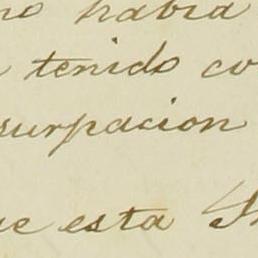 no habia
tenido co
surpacion
ue esta